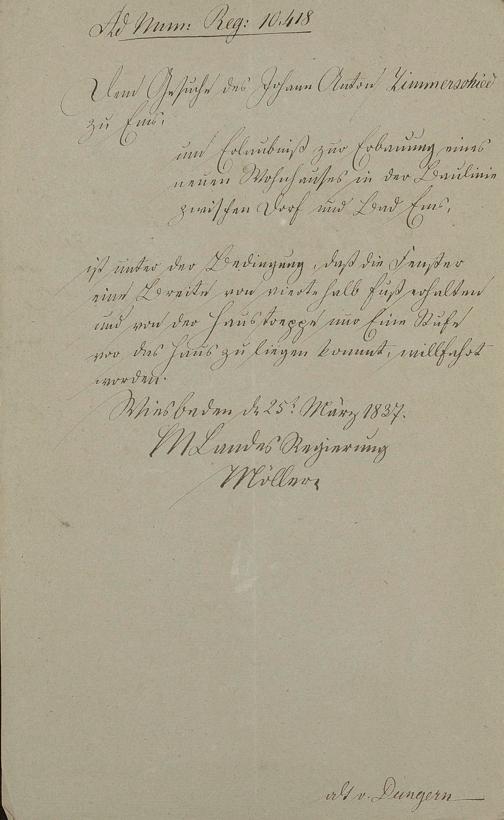 Ad Num: Reg: 10,418
Dem Gesuche des Johann Anton Zimmerschied
zu Ems,
um Erlaubniß zur Erbauung eines
neuen Wohnhauses in der Baulinie
zwischen Dorf und Bad Ems,
ist unter der Bedingung, daß die Fenster
eine Breite von viertehalb Fuß erhalten
und von der Haustreppe nur Eine Stufe
vor das Haus zu liegen kommt, willfahrt
worden.
Wiesbaden d. 25t März 1837.
Landes Regierung
Möller
v. Dungern